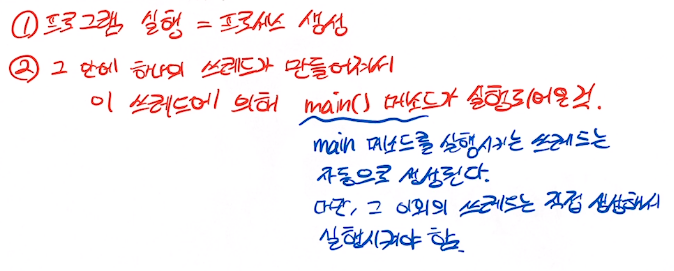 ① 프로그램 실행 = 프로세스 생성
② 그 안에 하나의 쓰레드가 만들어져서
이 쓰레드에 의해 main() 메소드가 실행되어온것.
main 메소드를 실행시키는 쓰레드는
자동으로 생성된다.
다만, 그 이외의 쓰레드는 직접 생성해서
실행시켜야 함.